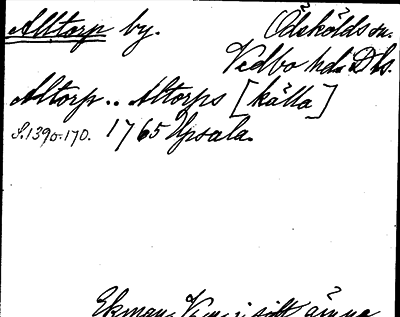 Alltorp by. Ödskölds sn.
Vedbo hd. Dls.
Altorp .. Altorps [källa]
S. 139o-170. 1765 Upsala.
Ekman, Venn i sitt ämne